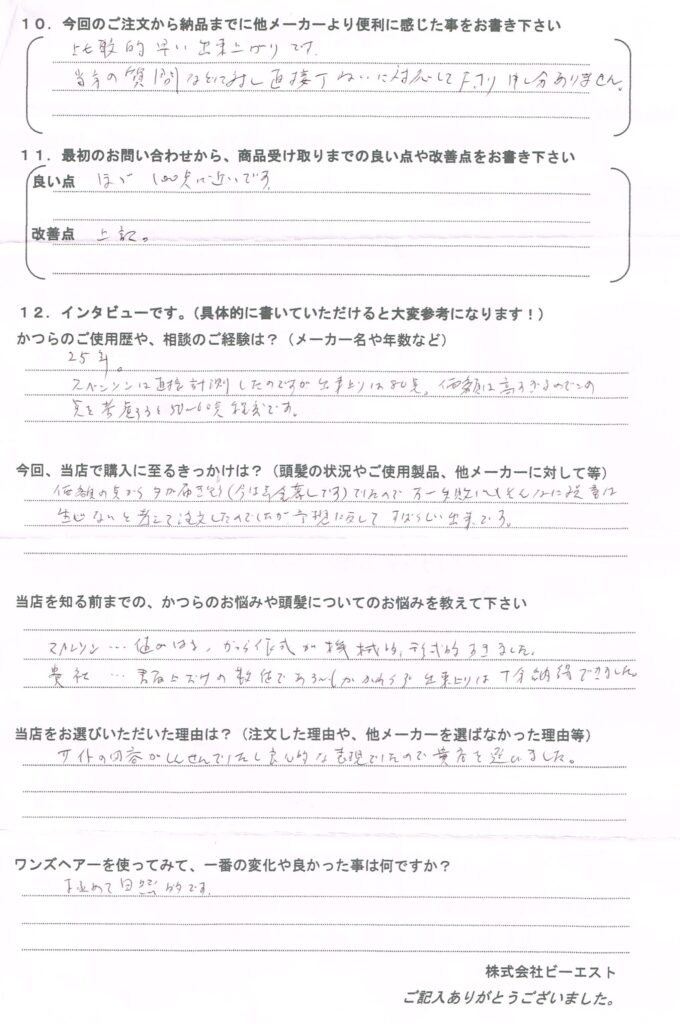 １０．今回のご注文から納品までに他メーカーより便利に感じた事をお書き下さい
比較的早い出来上がりです。
当方の質問などに対し直接ていねいに対応して下さり申し分ありません。
１１．最初のお問い合わせから、商品受け取りまでの良い点や改善点をお書き下さい
良い点 ほゞ100点に近いです。
改善点 上記。
１２．インタビューです。（具体的に書いていただけると大変参考になります！）
かつらのご使用歴や、相談のご経験は？（メーカー名や年数など）
25年。
スベンソンは直接計測したのですが出来上りは80点。価額は高すぎるのでこの
点を考慮すると50〜60点程度です。
今回、当店で購入に至るきっかけは？（頭髪の状況やご使用製品、他メーカーに対して等）
価額の点から（今は 全 です）でしたので万一失敗してもそんなに は
生じないと考えて注文したのでしたが予想に反してすばらしい出来です。
当店を知る前までの、かつらのお悩みや頭髪についてのお悩みを教えて下さい
スベンソン…値がはる、かつら作成が機械的、形式的すぎました。
貴社…書面上だけの数値であるにもかかわらず出来上りは十分納得できました。
当店をお選びいただいた理由は？（注文した理由や、他メーカーを選ばなかった理由等）
サイトの内容がしんせんでしたし良心的な表現でしたので貴店を選びました。
ワンズヘアーを使ってみて、一番の変化や良かった事は何ですか？
極めて自然的です。
株式会社ビーエスト
ご記入ありがとうございました。